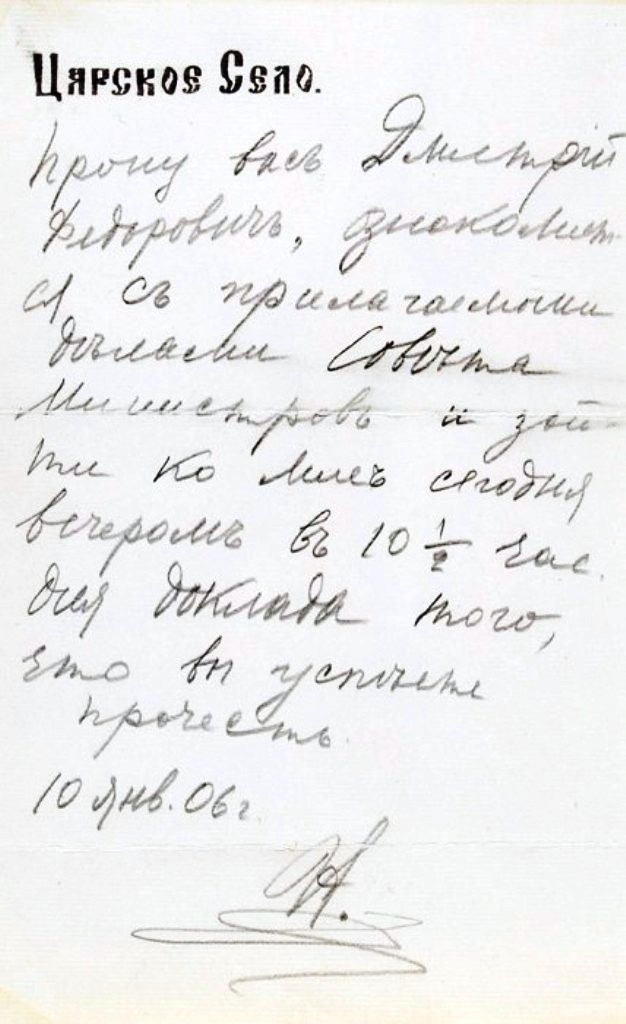 Царское Село.
Прошу васъ Дмитрій
Ѳедоровичъ, ознакомить-
ся съ прилагаемыми
дѣлами Совѣта
Министровъ и зай-
ти ко мнѣ сегодня
вечеромъ въ 10 1/2 час.
для доклада того,
что вы успѣете
прочесть.
10 янв. 06 г.
Н.